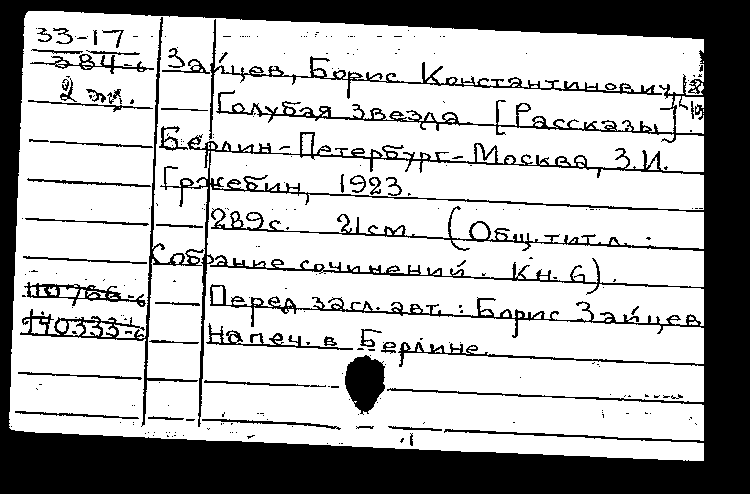 33-17
384-б
2 экз.
Зайцев, Борис Константинович,
Голубая звезда. [Рассказы].
Берлин-Петербург-Москва, З.И.
Гржебин, 1923.
289с. 21см. (Общ.тит.л. :
Собрание сочинений. Кн. 6).
110766-б
140333-б
Перед загл. авт. : Борис Зайцев
Напеч. в Берлине.